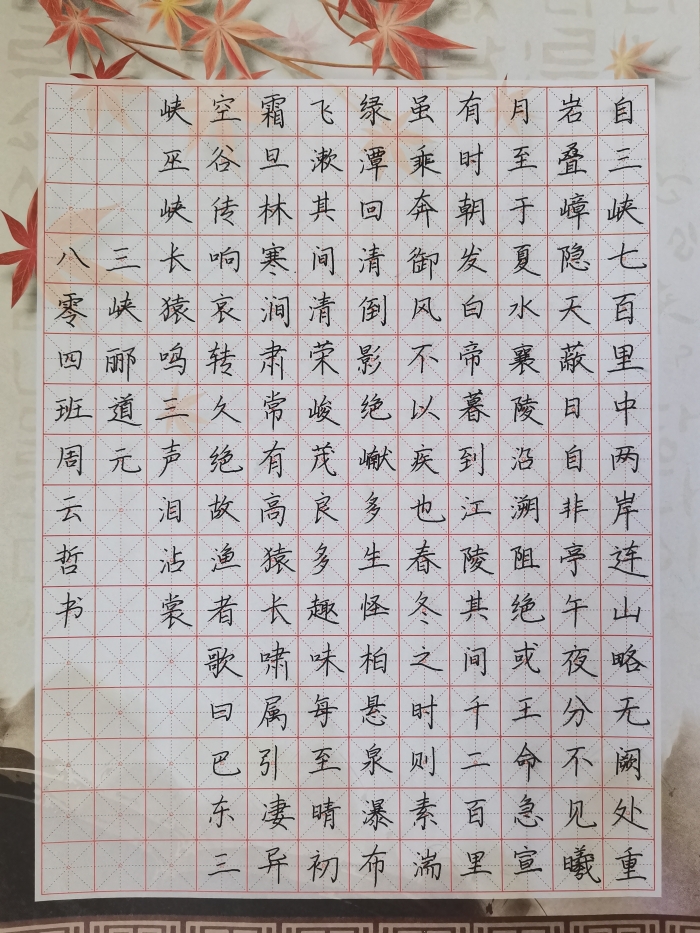 自三峡七百里中两岸连山略无阙处重
岩叠嶂隐天蔽日自非亭午夜分不见曦
月至于夏水襄陵沿溯阻绝或王命急宣
有时朝发白帝暮到江陵其间千二百里
虽乘奔御风不以疾也春冬之时则素湍
绿潭回清倒影绝𪩘多生怪柏悬泉瀑布
飞漱其间清荣峻茂良多趣味每至晴初
霜旦林寒涧肃常有高猿长啸属引凄异
空谷传响哀转久绝故渔者歌曰巴东三
峡巫峡长猿鸣三声泪沾裳
三峡郦道元
八零四班周云哲书